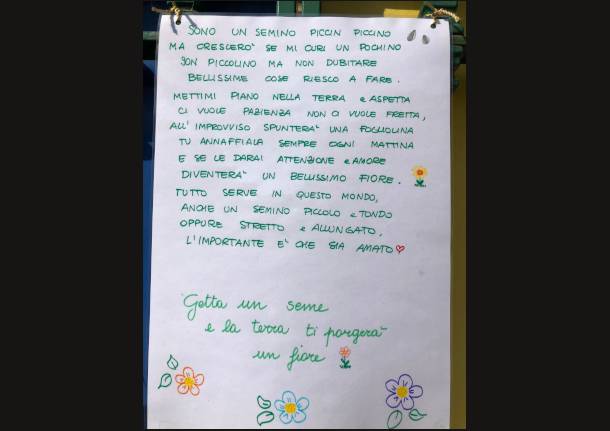 SONO UN SEMINO PICCIN PICCINO
MA CRESCERO' SE MI CURI UN POCHINO
SON PICCOLINO MA NON DUBITARE
BELLISSIME COSE RIESCO A FARE.
METTIMI PIANO NELLA TERRA e ASPETTA
CI VUOLE PAZIENZA NON CI VUOLE FRETTA,
ALL'IMPROVVISO SPUNTERA' UNA FOGLIOLINA
TU ANNAFFIALA SEMPRE OGNI MATTINA
E SE LE DARAI ATTENZIONE e AMORE
DIVENTERA' UN BELLISSIMO FIORE.
TUTTO SERVE IN QUESTO MONDO,
ANCHE UN SEMINO PICCOLO e TONDO
OPPURE STRETTO e ALLUNGATO,
L'IMPORTANTE E' CHE SIA AMATO
"Getta un seme
e la terra ti porgerà
un fiore